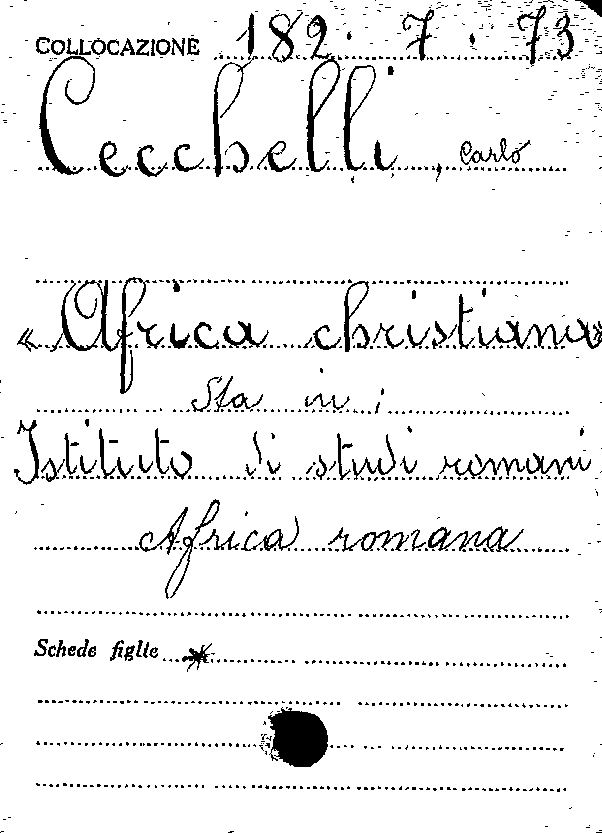 COLLOCAZIONE 182.7.73
Cecchelli, Carlo
«Africa christiana»
Sta in:
Istituto di studi romani
Africa romana
Schede figlie *